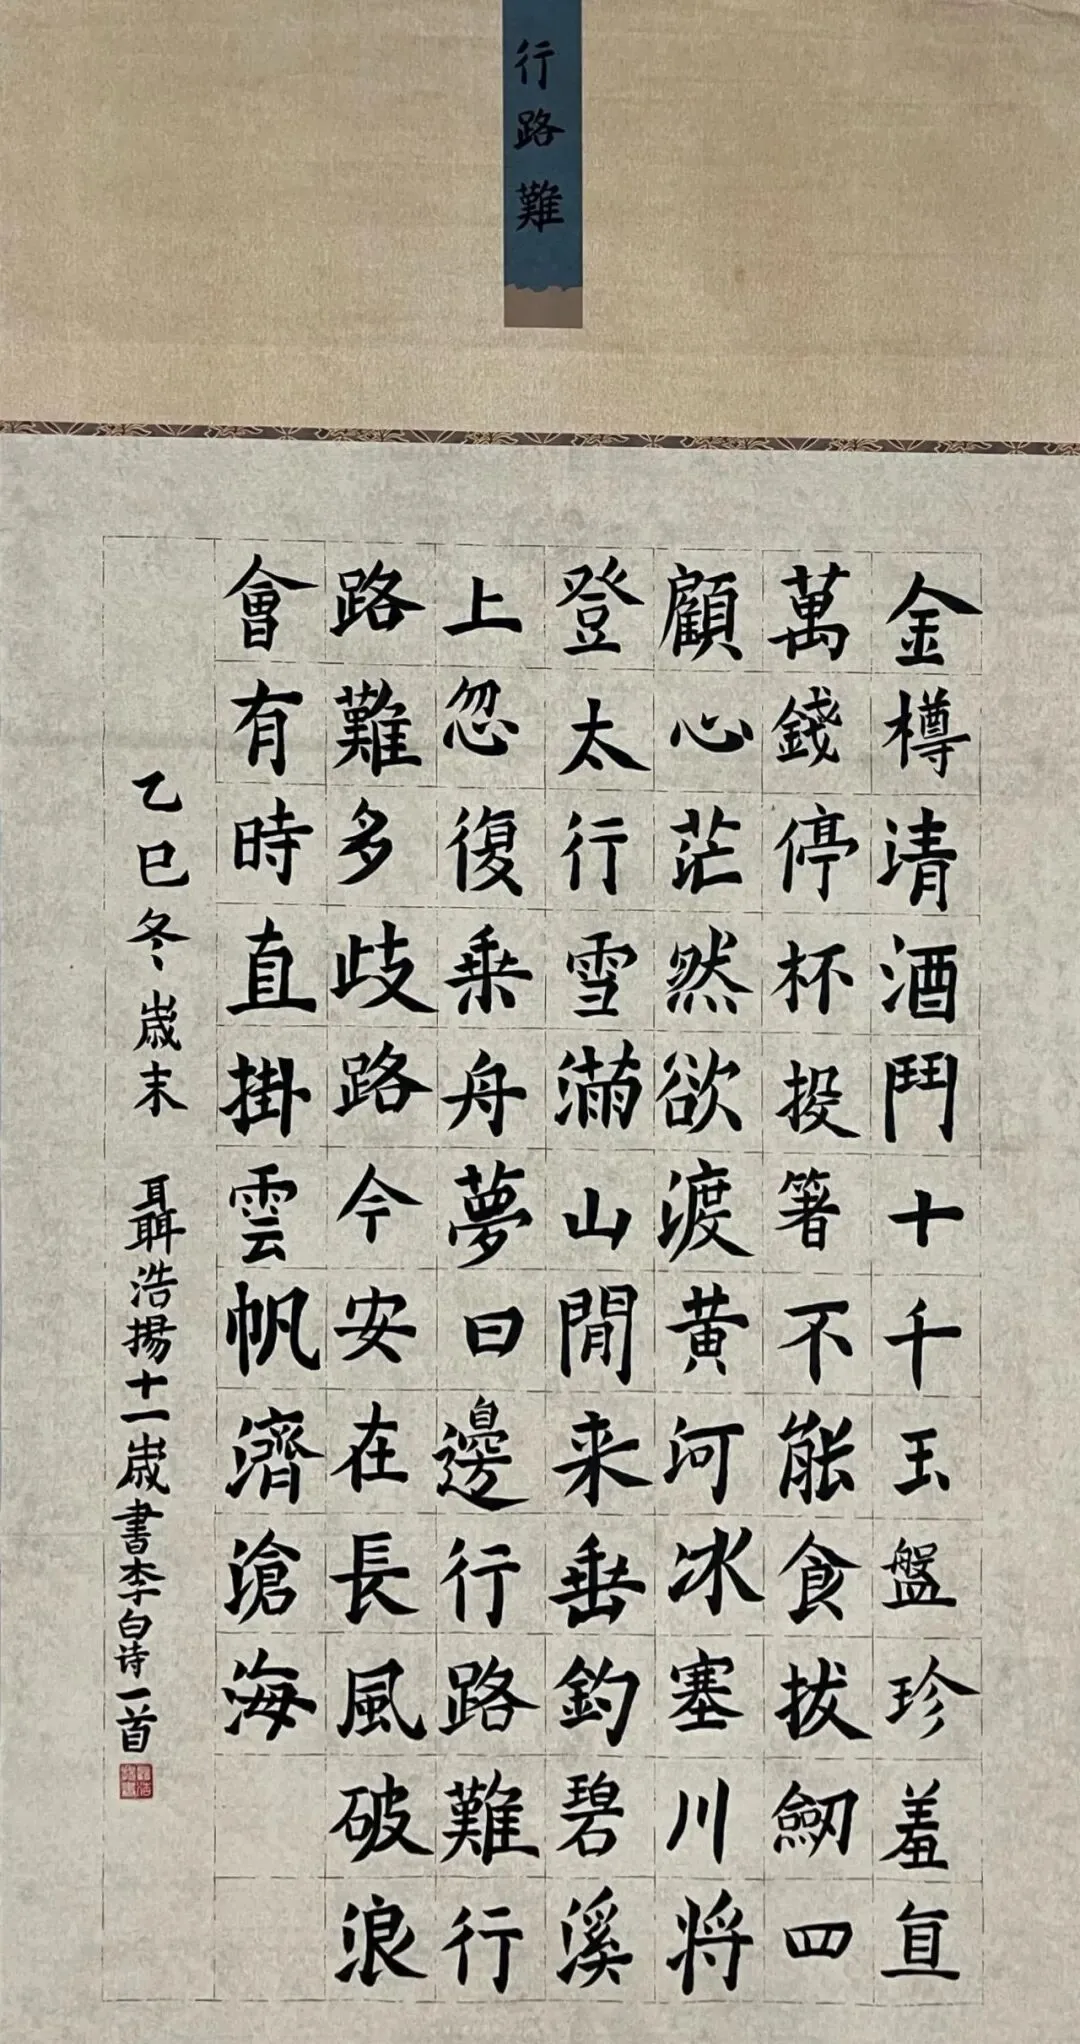 行路難
金樽清酒鬥十千玉盤珍羞直
萬錢停杯投箸不能食拔劒四
顧心茫然欲渡黄河冰塞川将
登太行雪滿山閒来垂釣碧溪
上忽復乗舟夢日邊行路難行
路難多歧路今安在長風破浪
會有時直掛雲帆濟滄海
乙巳冬歲末 聶浩揚十一歲書李白诗一首